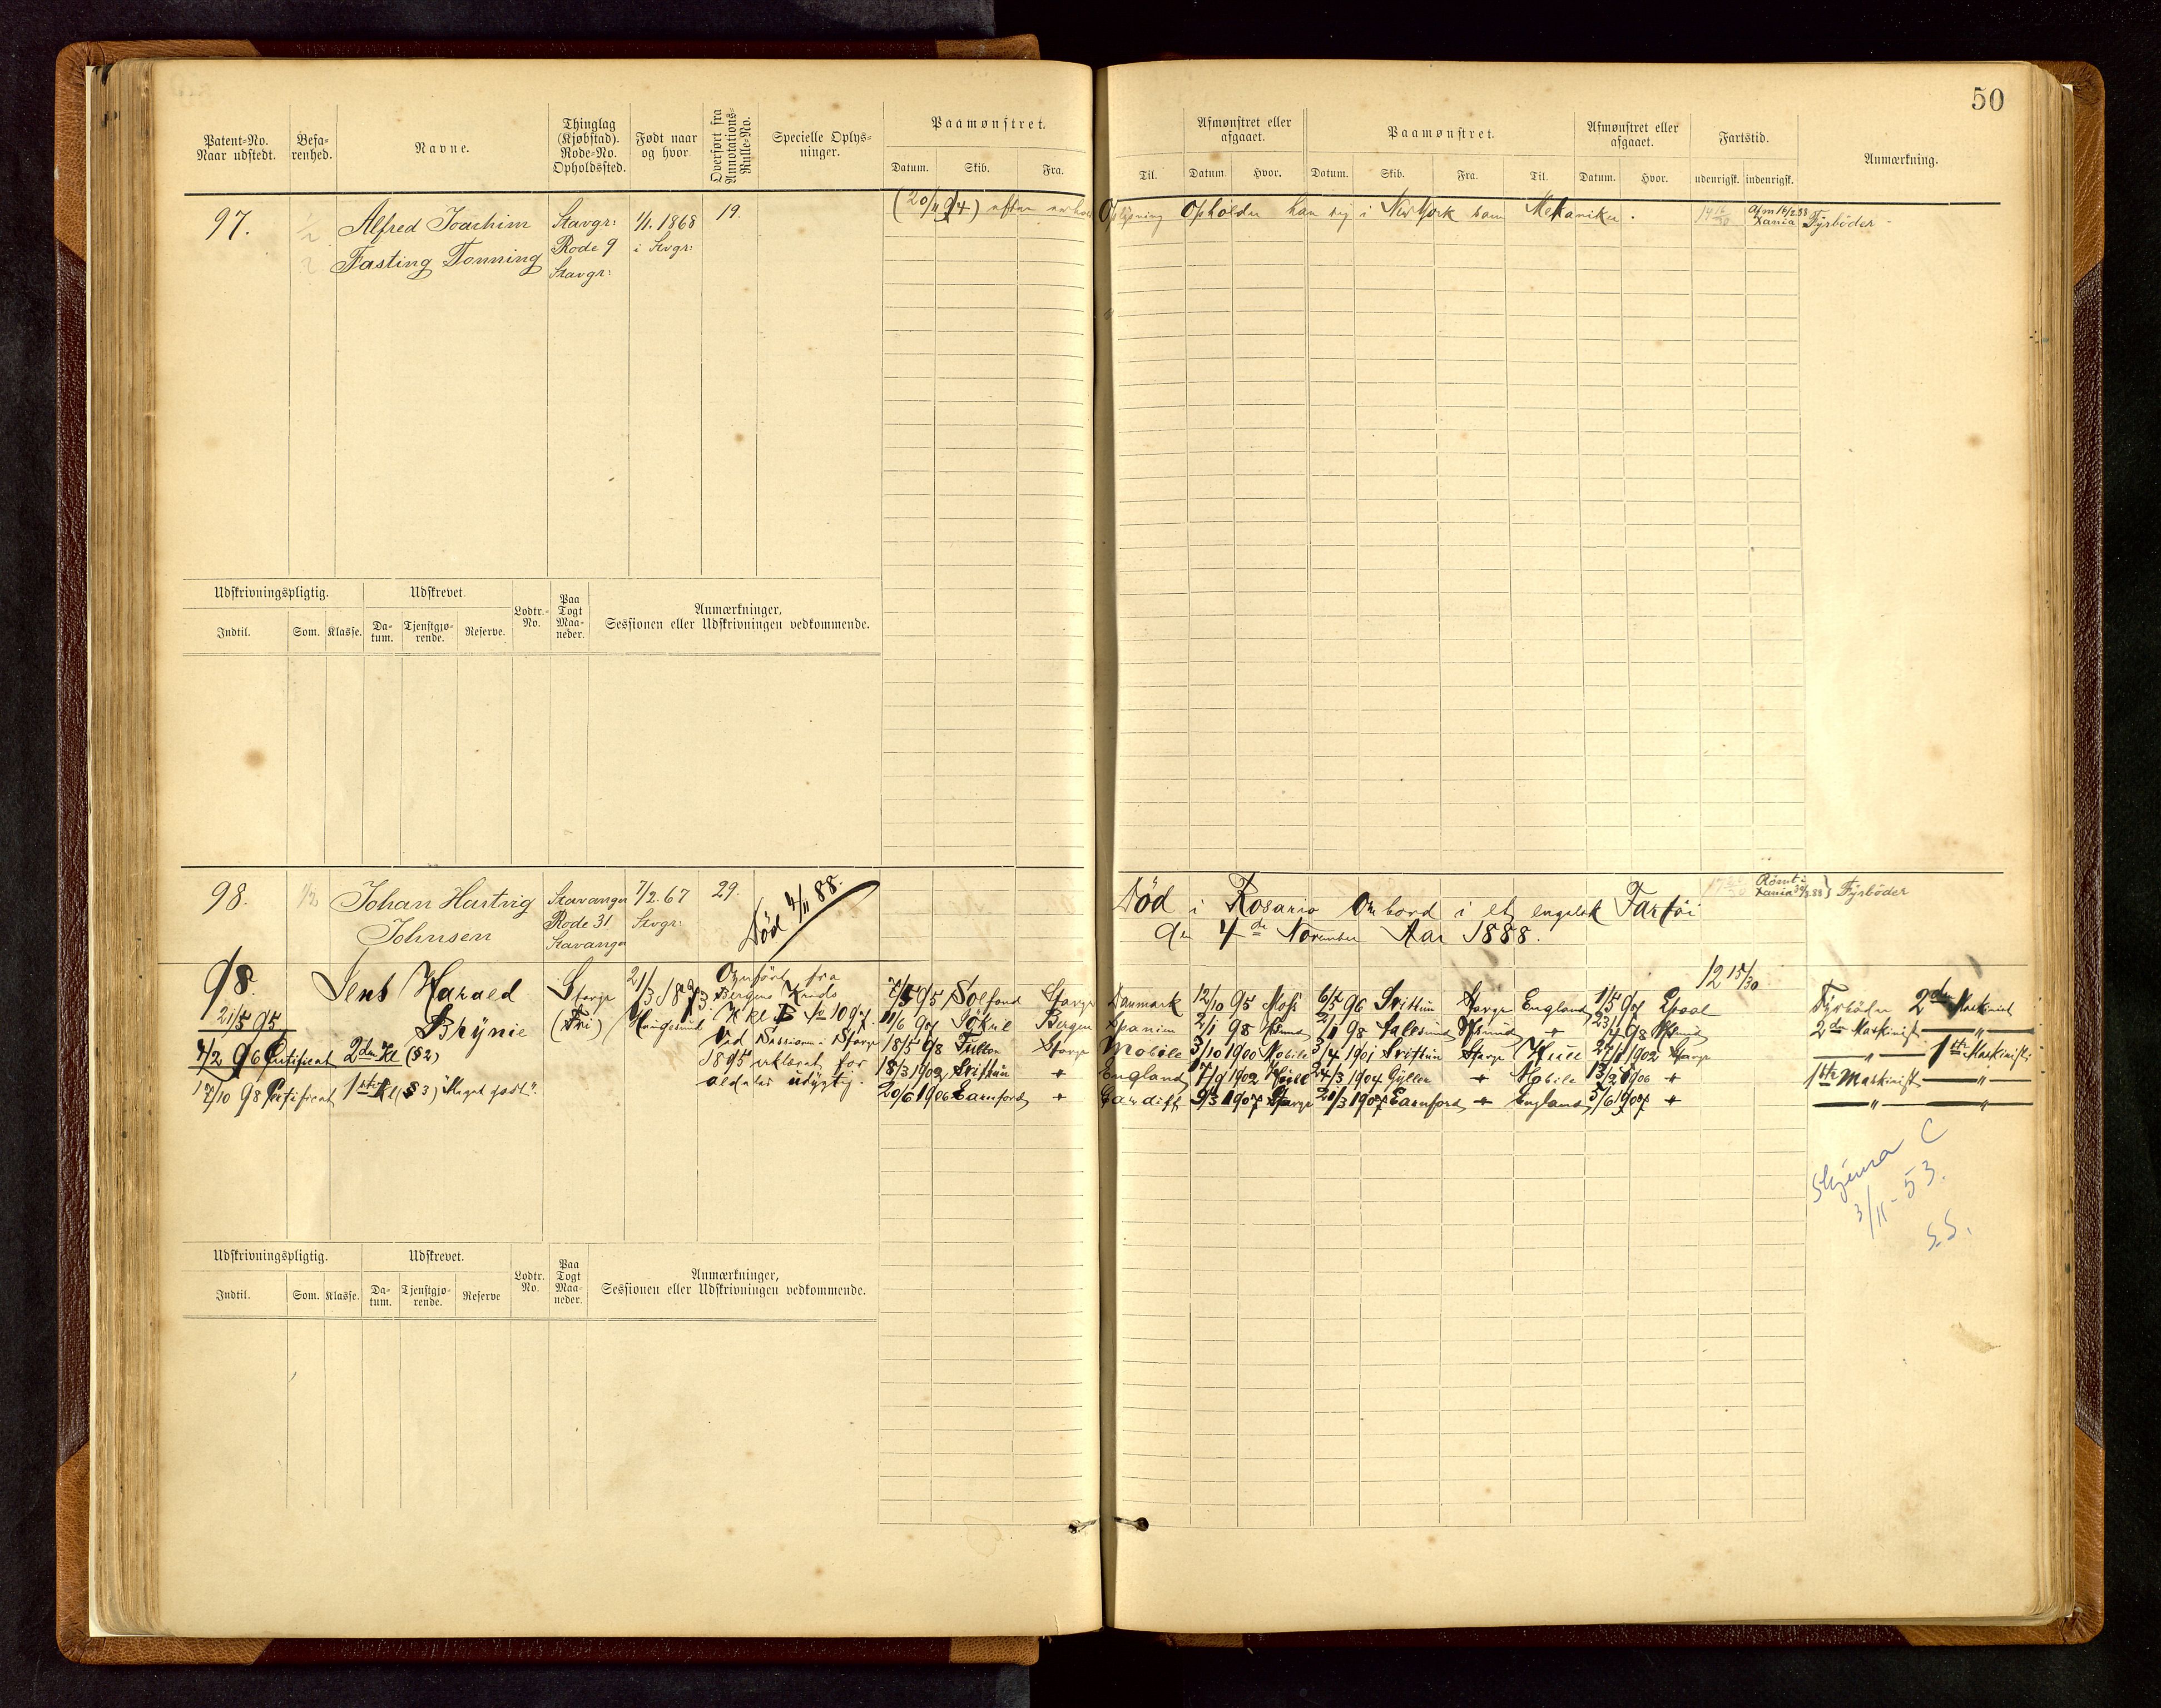 50
Patent-No. Naar udstedt.
Befarenhed.
Navne.
Thinglag (Kjøbstad). Rode-No. Opholdssted.
Født naar og hvor
Overført fra Annotations-Rulle-No.
Specielle Oplysninger.
Paamønstret.
Datum. Skib. Fra.
Til.
Afmønstret eller afgaaet.
Datum. Hvor.
Paamønstret.
Datum. Skib. Fra. Til.
Afmønstret eller afgaaet.
Datum. Hvor.
Fartstid.
udenrigsk. indenrigsk.
Anmærkning.
97.
Alfred Joachim
Fasting Tonning
Stavgr:
Rode 9
Stavgr:
1/1. 1868
i Svgr:
19.
(20/11 94) efter erhol Oplysning Opholder han sig i New York som Mekaniker.
Afm 14/2 88
Xania
Fyrbøder
Udskrivningspligtig.
Indtil. Som. Klasse.
Udskrevet.
Datum. Tjenstgjørende. Reserve.
Lodtr.-No.
Paa Togt Maaneder.
Anmærkninger,
Sessionen eller Udskrivningen vedkommende.
98.
1/2
Johan Hartvig
Johnsen
Stavanger
Rode 31
Stavanger
7/2. 67
Svgr:
29.
Död 4/11 88.
Död i Rosario Ombord i et engelsk Fartöi
den 4de November Aar 1888.
Römt i
Xania 30/8.88 } Fyrböder
98.
21/5 95
Jens Harald
Brynie
Stavgr
(Fri)
21/3 1873
Haugesund
Overført fra
Bergens Kreds
X kl No 1097.
Ved Sessionen i Stavgr
1895 erklæret for
aldeles udygtig.
4/2 96 Certificat 2den Kl (§2)
17/10 98 Certificat 1ste Kl (§3) "Meget godt".
7/5 95 Solfond Stavgr Danmark 12/10 95 Mosj 6/5 96 Svithun Stavgr England 1/5 97
12 15/30
Fyrböder 2den Maskinist
11/6 97 Jökul Bergen Spanien 2/1 98 2/1 98 23/ 98
2den Maskinist "
18/5 98 Fulton Stavgr Mobile 3/10 1900 Mobile 3/4 1901 Svithun Stavgr Hull 1902 Stavgr
" 1ste Maskinist
18/3 1902 Svithun " England 17/9 1902 24/3 1904 Gyller " Mobile 13/2 1906 "
1ste Maskinist "
20/6 1906 Earnford " Cardiff 9/3 1907 Stavgr 21/3 1907 Earnford " England 5/6 1907 "
" "
Skjema C
3/11-53.
S.S.
Udskrivningspligtig.
Indtil. Som. Klasse.
Udskrevet.
Datum. Tjenstgjørende. Reserve
Lodtr. No.
Paa Togt Maaneder.
Anmærkninger,
Sessionen eller Udskrivningen vedkommende.